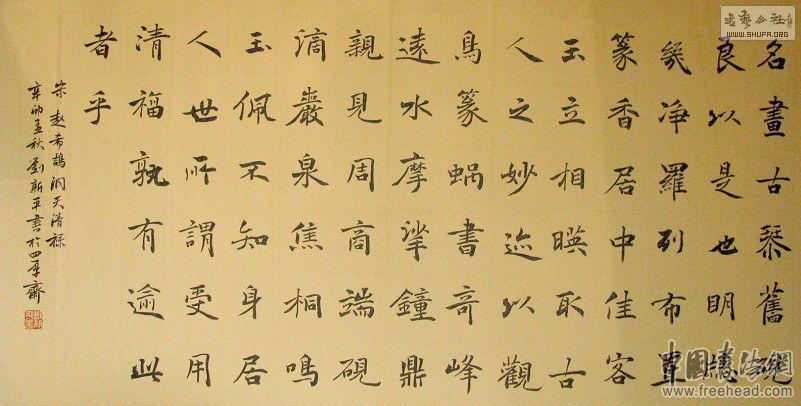 名畫古琴舊硯
良以是也明牕
幾净羅列布置
篆香居中佳客
玉立相暎取古
人之妙迹以觀
鳥篆蝸書奇峰
遠水摩挲鐘鼎
親見周商端硯
滴巖泉焦桐鳴
玉佩不知身居
人世所謂受用
清福孰有逾此
者乎
宋 趙希鵠 洞天清祿
辛卯孟秋 劉新平書於四齋
書藝公社
WWW.SHUFA.ORG
中国书法網
www.freehead.com